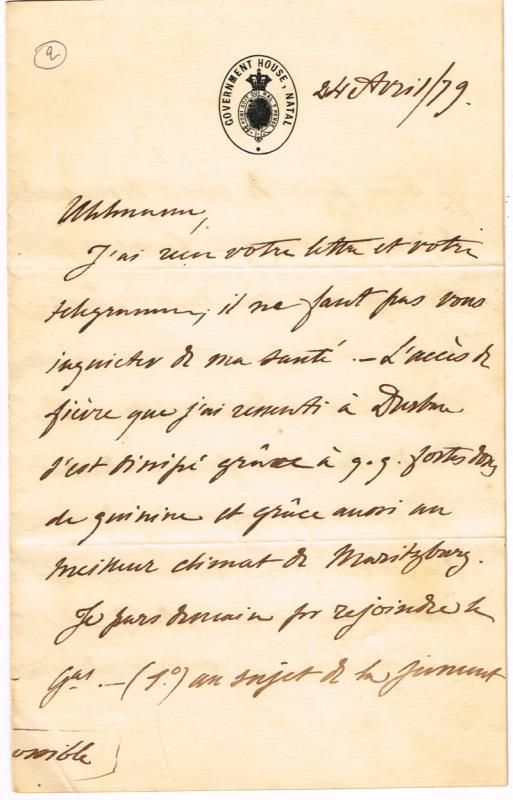 2
GOVERNMENT HOUSE, NATAL
24 Avril/79.
Uhlmann,
J'ai reçu votre lettre et votre
telegramme; il ne faut pas vous
inquieter de ma santé. – L'accès de
fièvre que j'ai ressenti à Durban
s'est dissipé grâce à q.q. fortes doses
de quinine et grâce aussi au
meilleur climat de Maritzburg.
Je pars demain pr rejoindre le
Gal. – (1.o) au sujet de la jument
ossible